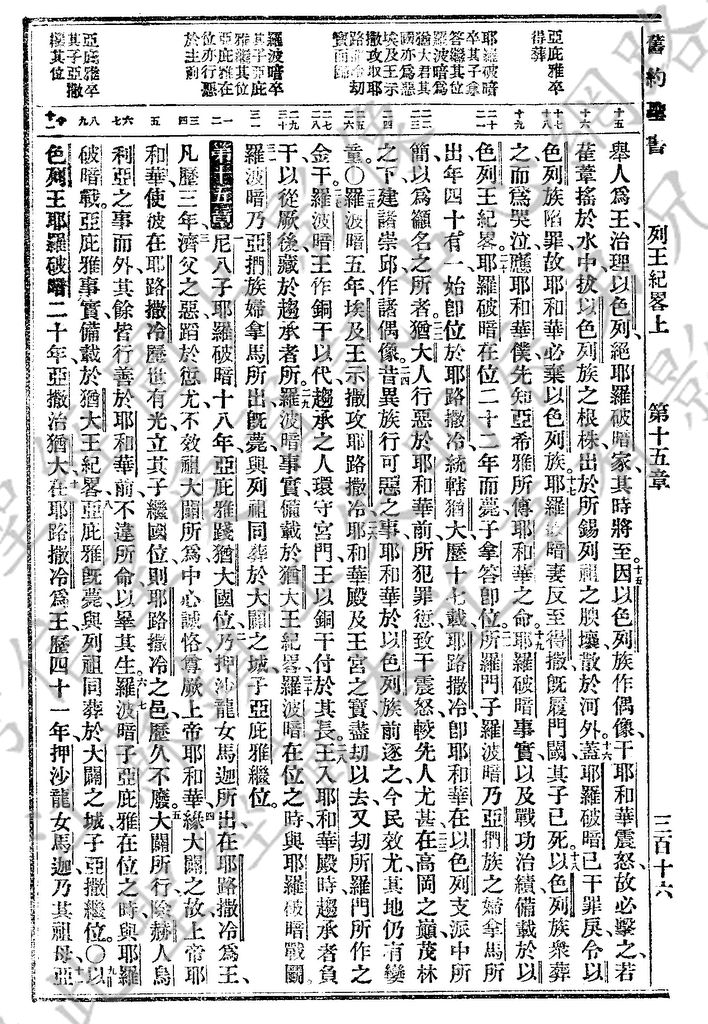 舊約聖書
列王紀畧上
第十五章
三百十六
亞庇雅卒得葬
耶羅破暗卒其子拿答繼其位
羅波暗為猶大君其國亦為惡
埃及王示撒攻取耶路撒冷劫寶而歸
羅波暗卒其子亞庇雅繼其位
亞庇雅在位亦行惡於主前
亞庇雅卒其子亞撒繼其位
舉人為王治理以色列絕耶羅破暗家其時將至因以色列族作偶像干耶和華震怒故必擊之若
萑葦搖於水中拔以色列族之根株出於所錫列祖之腴壤散於河外蓋耶羅破暗已干罪戾令以
色列族陷罪故耶和華必棄以色列族耶羅破暗妻反至得撒旣履門閾其子已死以色列族衆葬
之而為哭泣應耶和華僕先知亞希雅所傳耶和華之命耶羅破暗事實以及戰功治績備載於以
色列王紀畧耶羅破暗在位二十二年而薨子拿答卽位所羅門子羅波暗乃亞捫族之婦拿馬所
出年四十有一始卽位於耶路撒冷統轄猶大歷十七載耶路撒冷卽耶和華在以色列支派中所
簡以為籲名之所者猶大人行惡於耶和華前所犯罪愆致干震怒較先人尤甚在高岡之巔茂林
之下建諸崇邱作諸偶像昔異族行可惡之事耶和華於以色列族前逐之今民效尤其地仍有孌
童〇羅波暗五年埃及王示撒攻耶路撒冷耶和華殿及王宮之寶盡劫以去又劫所羅門所作之
金干羅波暗王作銅干以代趨承之人環守宮門王以銅干付於其長王入耶和華殿時趨承者負
干以從厥後藏於趨承者所羅波暗事實備載於猶大王紀畧羅波暗在位之時與耶羅破暗戰鬭
羅波暗乃亞捫族婦拿馬所出旣薨與列祖同葬於大闢之城子亞庇雅繼位
第十五章 尼八子耶羅破暗十八年亞庇雅踐猶大國位乃押沙龍女馬迦所出在耶路撒冷為王
凡歷三年濟父之惡蹈於愆尤不效祖大闢所為中心誠恪尊厥上帝耶和華緣大闢之故上帝耶
和華使彼在耶路撒冷歷世有光立其子繼國位則耶路撒冷之邑歷久不廢大闢所行除赫人烏
利亞之事而外其餘皆行善於耶和華前不違所命以畢其生羅波暗子亞庇雅在位之時與耶羅
破暗戰亞庇雅事實備載於猶大王紀畧亞庇雅旣薨與列祖同葬於大闢之城子亞撒繼位〇以
色列王耶羅破暗二十年亞撒治猶大在耶路撒冷為王歷四十一年押沙龍女馬迦乃其祖母亞